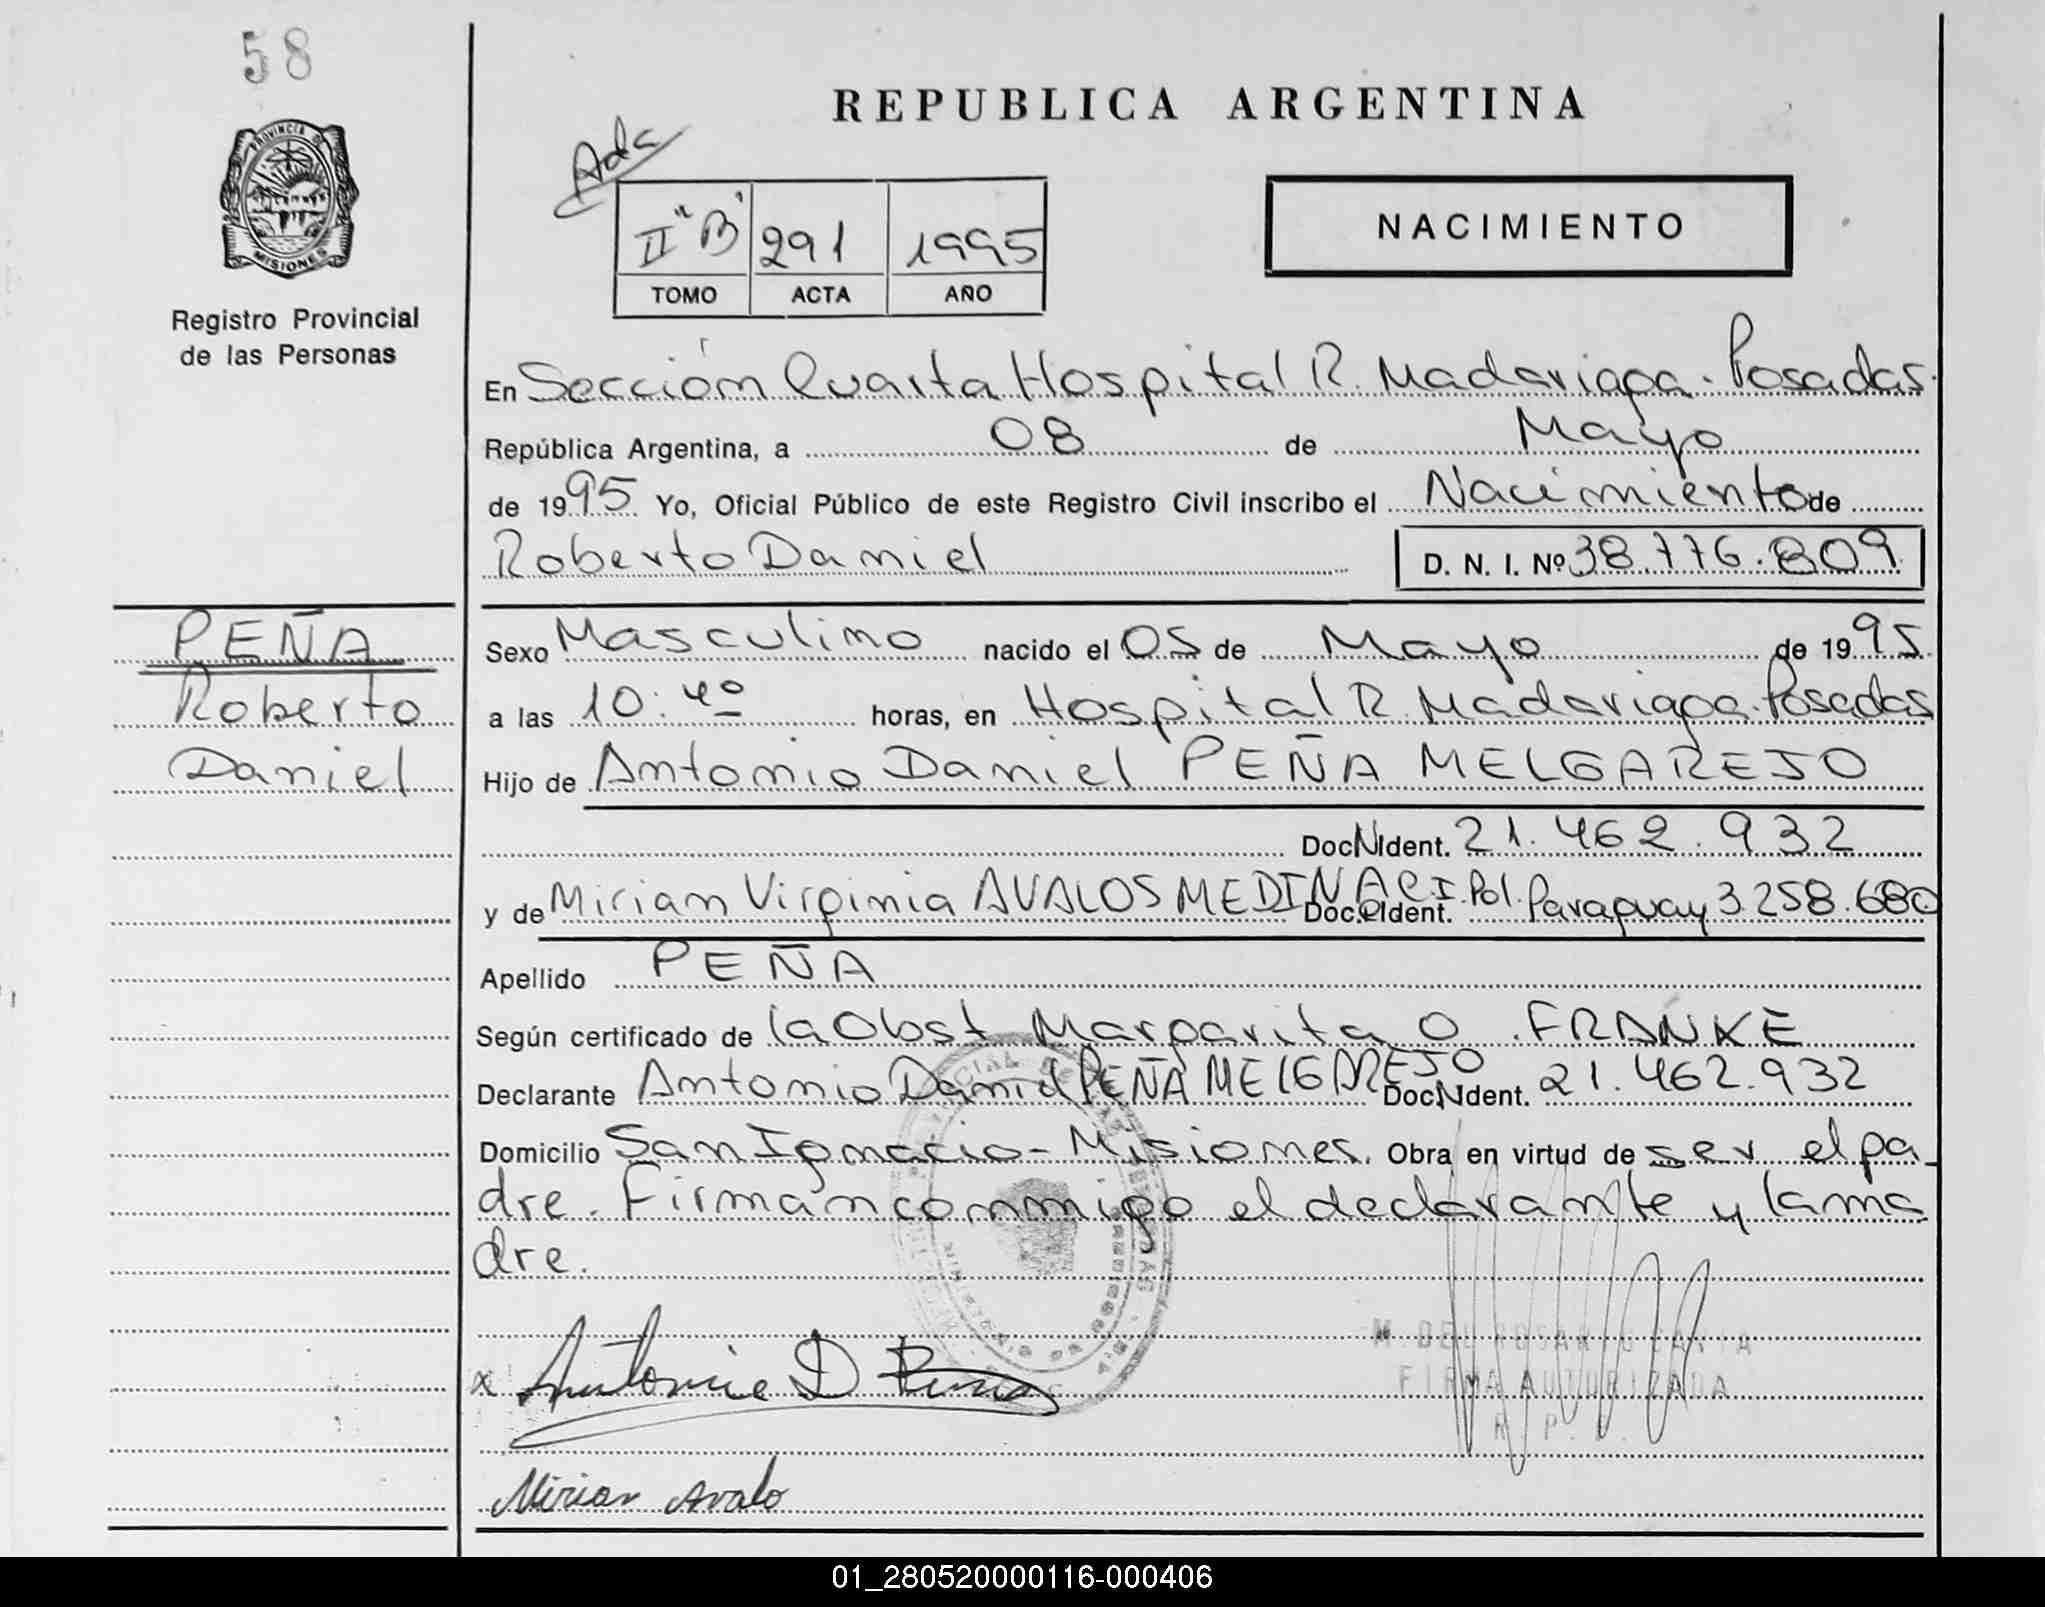 58
PROVINCIA DE
MISIONES
Registro Provincial
de las Personas
REPUBLICA ARGENTINA
II "B" 291 1995
TOMO ACTA AÑO
NACIMIENTO
En Sección Cuarta Hospital R. Madariaga - Posadas.
República Argentina, a 08 de Mayo
de 1995 Yo, Oficial Público de este Registro Civil inscribo el Nacimiento de
Roberto Daniel D. N. I. Nº 38.776.809
PEÑA
Roberto
Daniel
Sexo Masculino nacido el 05 de Mayo de 1995
a las 10:40 horas, en Hospital R. Madariaga-Posadas
Hijo de Antonio Daniel PEÑA MELGAREJO
Doc N Ident. 21.462.932
y de Mirian Virginia AVALOS MEDINA C.I. Pol. Paraguay 3.258.680
Doc. Ident.
Apellido PEÑA
Según certificado de la Obst Margarita O. FRANKE
Declarante Antonio Daniel PEÑA MELGAREJO Doc N Ident. 21.462.932
Domicilio San Ignacio - Misiones. Obra en virtud de ser el pa-
dre. Firman conmigo el declarante y la ma
dre.
x Antonio D Peña
FIRMA AUTORIZADA
Mirian Avalo
01_280520000116-000406